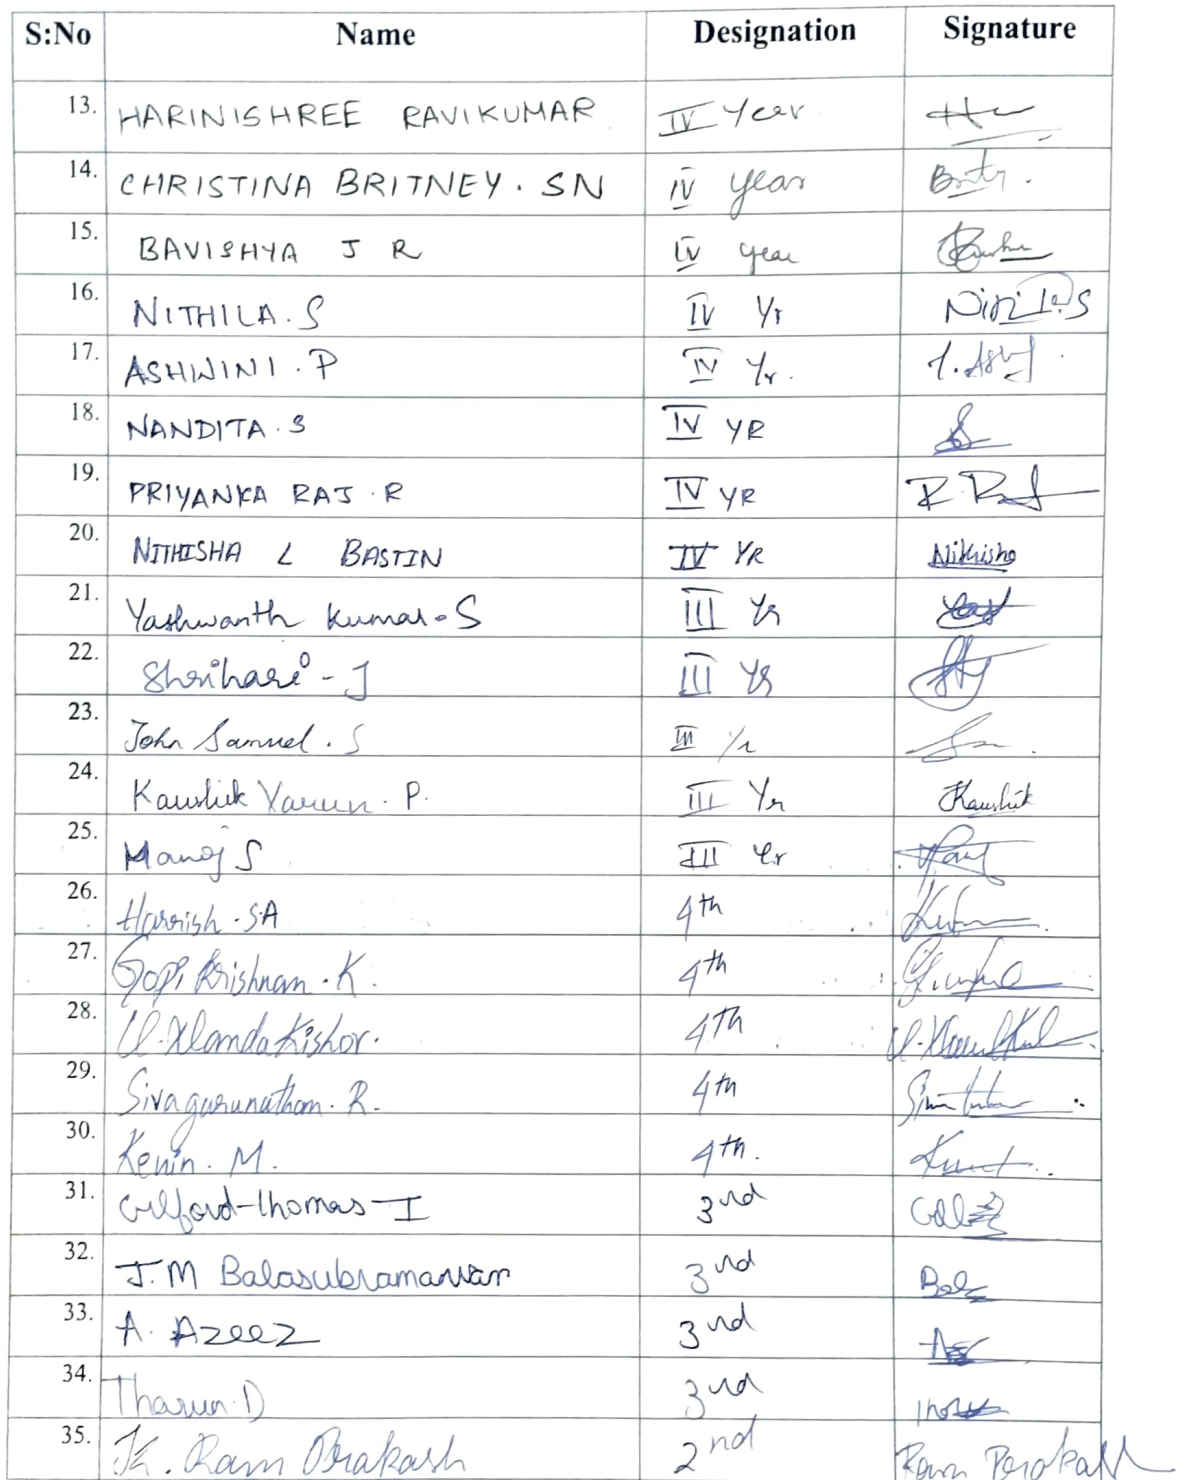 S:No Name Designation Signature
13. HARINISHREE RAVIKUMAR IV Year
14. CHRISTINA BRITNEY. SN IV year
15. BAVISHYA J R IV year
16. NITHILA. S IV Yr
17. ASHWINI. P IV Yr.
18. NANDITA. S IV YR
19. PRIYANKA RAJ. R IV YR
20. NITHISHA L BASTIN IV YR Nithisha
21. Yashwanth Kumar. S III Yr
22. Shrihari - J III Yr
23. John Samuel. S III Yr
24. Kaushik Varun. P. III Yr Kaushik
25. Manoj S III Yr
26. Harrish. S.A 4th
27. Gopi Krishnan. K. 4th
28. U. Nanda Kishor. 4th
29. Sivagurunathan. R. 4th
30. Kevin. M. 4th.
31. Gilford-Thomas-I 3rd
32. J.M Balasubramanian 3rd
33. A. Azeez 3rd
34. Tharun. D 3rd
35. K. Ram Prakash 2nd Ram Prakash